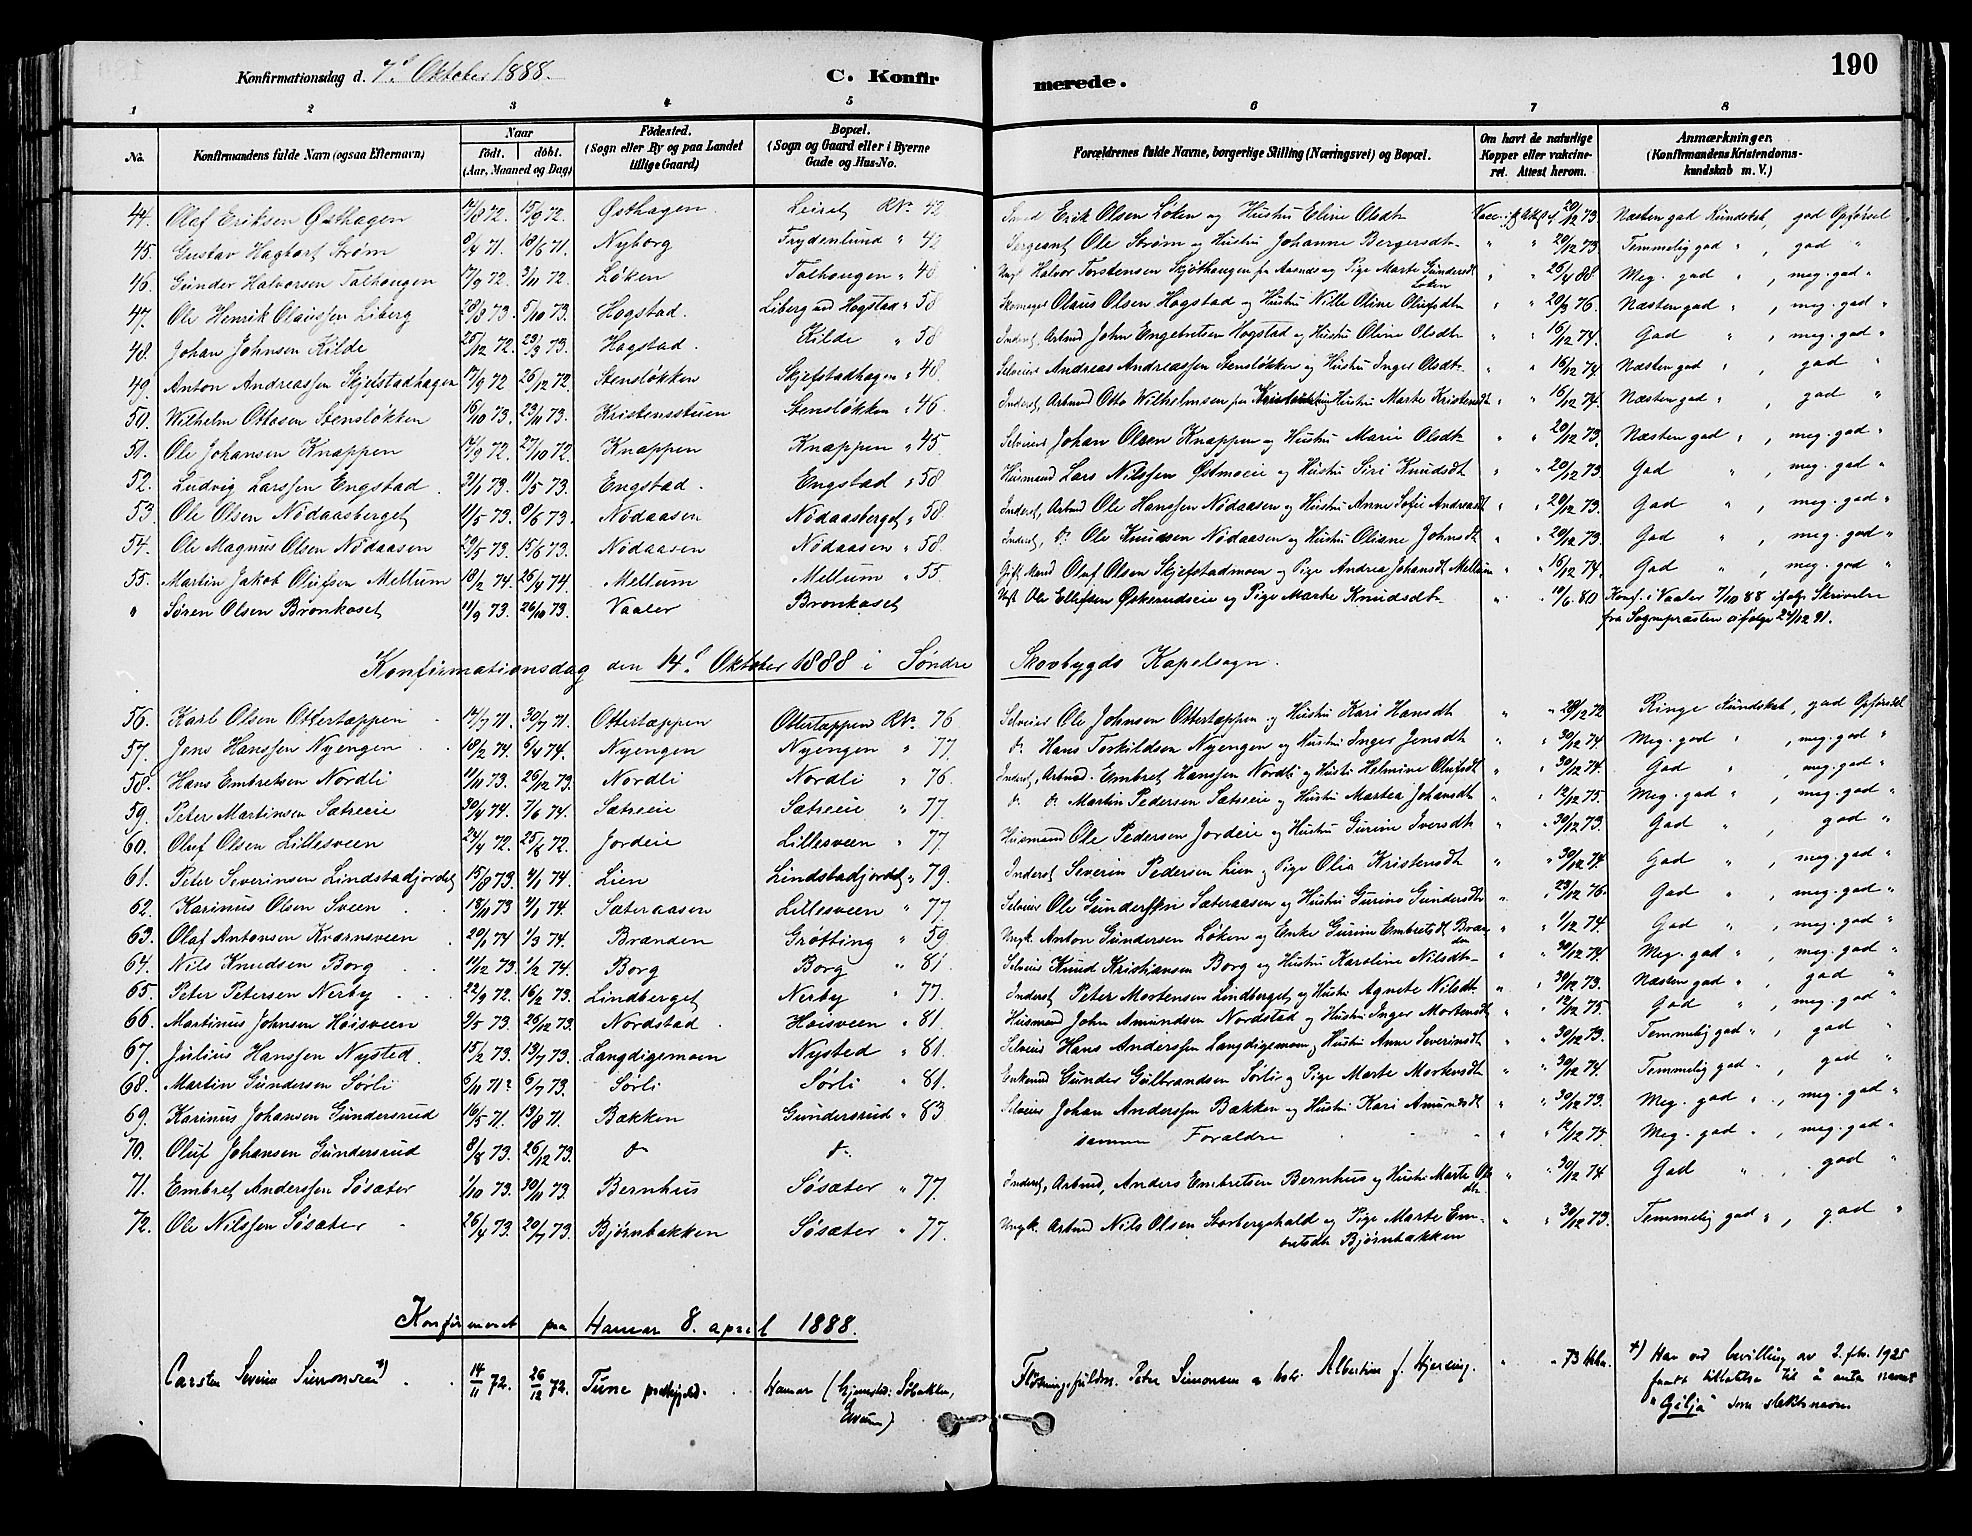 Konfirmationsdag d. 7d Oktober 1888.
C. Konfirmerede.
190
1 2 3 4 5 6 7 8
No. Konfirmandens fulde Navn (ogsaa Efternavn) Naar født. døbt. (Aar, Maaned og Dag) Fødested. (Sogn eller By og paa Landet tillige Gaard) Bopæl. (Sogn og Gaard eller i Byerne Gade og Hus-No. Forældrenes fulde Navne, borgerlige Stilling (Næringsvei) og Bopæl. Om havt de naturlige Kopper eller vakcineret. Attest herom. Anmærkninger, (Konfirmandens Kristendomskundskab m. V.)
44. Olaf Eriksen Østhagen 15/9 72. Østhagen. Leiret RNo. 42 Smed Erik Olsen Løken og Hustru Eline Olsdt. 20/12 73. Næsten god Kundskab, god Opførsel
45. Gustav Hagbart Strøm 8/4 71. 18/6 71. Nyborg Frydenlund " 42 Sergeant Ole Strøm og Hustru Johanne Bergersdtr " " 20/12 73. Temmelig god ", god "
46. Gunder Halvorsen Talhaugen 17/9 72. 3/11 72. Løken Talhaugen " 48 Ungk. Halvor Torstensen Skjøthaugen fra Aasnes og Pige Marte Gundersdt Løken " " 26/4 88 Meg. god ", meg. god "
47. Ole Henrik Olaussen Liberg 28/8 73. 5/10 73. Hogstad. Liberg und Hogstad " 58 Skomager Olaus Olsen Hogstad og Hustru Nille Oline Olufsdt " " 20/3 76. Næsten god ", meg. god "
48. Johan Johnsen Kilde 25/12 72. 23/3 73. Hogstad. Kilde " 58 Inderst, Arbmd John Engebretsen Hogstad og Hustru Oline Olsdtr " " 16/12 74. God ", meg. god "
49. Anton Andreassen Skjefstadhagen 17/9 72. 26/12 72. Stensløkken Skjefstadhagen " 48. Selveier Andreas Andreassen Stensløkken og Hustru Inger Olsdt. " " 16/12 74. Næsten god ", god "
50. Wilhelm Ottosen Stensløkken 16/10 73. 23/11 73. Kristensstuen Stensløkken " 46. Inderst, Arbmd Otto Wilhelmsen fra Hustru Marte Kristensdt " " 16/12 74. Næsten god ", god "
51. Ole Johansen Knappen 17/9 72. 27/10 72. Knappen Knappen " 45. Selveier Johan Olsen Knappen og Hustru Marie Olsdt. " " 20/12 73. Næsten god ", meg. god "
52. Ludvig Larssen Engstad. 21/1 73. 11/5 73. Engstad. Engstad " 58 Husmand Lars Nilssen Østmoeie og Hustru Siri Knudsdt " " 20/12 73. God ", meg. god "
53. Ole Olsen Nødaasberget 11/5 73. 8/6 73. Nødaasen Nødaasberget " 58. Inderst, Arbmd Ole Hanssen Nødaasen og Hustru Anne Sofie Andreasdt " " 20/12 73. God ", meg. god "
54. Ole Magnus Olsen Nødaasen 29/5 73. 15/6 73. Nødaasen Nødaasen " 58. Inderst, do Ole Knudsen Nødaasen og Hustru Oliane Johnsdt " " 20/12 73. God ", meg. god "
55. Martin Jakob Olufsen Mellum 18/2 74. 26/4 74. Mellum Mellum " 55. Gift Mand Oluf Olsen Skjefstadmoen og Pige Andrea Johansdt Mellum " " 16/12 74. God ", meg. god "
" Søren Olsen Bronkaset 11/9 73. 26/10 73. Vaaler Bronkaset Ole Ellefsen og Pige Marte Knudsdtr " " 19/6 80 Konf. i Vaaler 7/10 88 ifølge Skrivelse
fra Sognepræsten ifølge 24/12 91.
Konfirmationsdag den 14d Oktober 1888 i Søndre Skovbygds Kapelsogn.
56. Karl Olsen Ottertappen 14/7 71. 30/7 71. Ottertappen Ottertappen RNo. 76 Selveier Ole Johnsen Ottertappen og Hustru Kari Hansdt " " 28/12 72 Ringe Kundskab, god Opførsel
57. Jens Hanssen Nyengen 18/2 74. 6/4 74. Nyengen Nyengen " 77 do Hans Torkildsen Nyengen og Hustru Inger Jensdt " " 30/12 74. Meg. god ", meg. god "
58. Hans Embretsen Nordli 11/11 73. 26/12 73. Nordli Nordli " 76. Inderst, Arbmd. Embret Hanssen Nordli og Hustru Helmine Olufsdt " " 30/12 74. God ", meg. god "
59. Peter Martinsen Sætreeie 30/4 74. 7/6 74. Sætreeie Sætreeie " 77. do do Martin Pedersen Sætreeie og Hustru Martea Johansdt " " 12/12 75. Meg. god ", meg. god "
60. Oluf Olsen Lillesveen 24/4 72. 25/6 72. Jordeie Lillesveen " 77. Husmand Ole Pedersen Jordeie og Hustru Gurine Iversdt " " 30/12 73. God ", god "
61. Peter Severinsen Lindstadjordet 15/8 73. 4/1 74. Lien Lindstadjordet " 79. Inderst Severin Pedersen Lien og Pige Olia Kristensdt " " 30/12 74. God ", meg. god "
62. Karinus Olsen Sveen 18/11 73 4/1 74. Sæteraasen Lillesveen " 77. Selveier Ole Gundersen Sæteraasen og Hustru Gurine Gundersdt " " 23/12 76. God ", meg. god "
63. Olaf Antonsen Kværnsveen 20/1 74 1/3 74. Brænden Grøtting " 59 Ungk. Anton Gundersen Løken og Enke Gurine Embretsdt Brænden " " 1/12 74. God ", meg. god "
64. Nils Knudsen Borg 11/12 73. 1/2 74. Borg Borg " 81. Selveier Knud Kristiansen Borg og Hustru Karoline Nilsdt. " " 30/12 74. Meg. god ", meg. god "
65. Peter Petersen Nerby 22/9 72. 16/2 73. Lindberget Nerby " 77. Inderst Peter Mortensen Lindberget og Hustru Agnete Nilsdt. " " 30/12 73. Næsten god ", god "
66. Martinus Johnsen Høisveen 9/5 73. 26/12 73. Nordstad Høisveen " 81. Husmand John Amundsen Nordstad og Hustru Inger Mortensdt " " 12/12 75. God ", meg. god "
67. Julius Hanssen Nysted. 15/2 73. 13/7 73. Langdigemoen Nysted " 81. Selveier Hans Anderssen Langdigemoen og Hustru Anne Severinsdt " " 30/12 73. Temmelig god ", god "
68. Martin Gundersen Sørli 6/11 71? 6/7 73. Sørli Sørli " 81. Enkemd Gunder Gulbrandsen Sørli og Pige Marte Mortensdt " " 30/12 74. Temmelig god ", god "
69. Karinus Johansen Gundersrud 16/5 71. 13/8 71. Bækken Gundersrud " 83 Selveier Johan Anderssen Bækken og Hustru Kari Amundsdt " " 30/12 73. Meg. god ", meg. god "
70. Oluf Johansen Gundersrud 8/8 73. 26/12 73. do do samme Forældre " " 12/12 75. Meg. god ", meg. god "
71. Embret Anderssen Søsæter 1/10 73. 30/11 73. Bernhus Søsæter " 77. Inderst, Arbmd, Anders Embretsen Bernhus og Hustru Marte Olsdtr. " " 30/12 74. God ", god "
72. Ole Nilssen Søsæter 26/4 73. 20/7 73. Bjørnbakken Søsæter " 77. Ungk. Arbmd Nils Olsen Storbergshald og Pige Marte Em- " " 30/12 73. Temmelig god ", god "
bretsdtr Bjørnbakken
Konfirmeret paa Hamar 8. april 1888.
Carsten Severin Simonsen *) 14/11 72. 26/12 72. Tune prestegjeld. Hamar (Hjemsted: Solbakken, Elverum). Fløtningsfuldm. Peter Simonsen o. hstr. Albertine f. Hjersing. " " 73 *) Har ved bevilling av 2. fbr. 1925
faatt tillatelse til å anta navnet
"Gilja" som slektsnavn